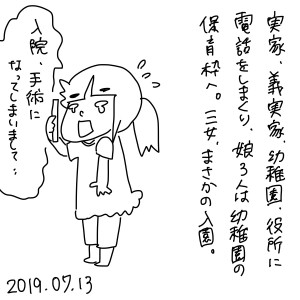 実家、義実家、幼稚園、役所に
電話をしまくり、娘3人は幼稚園の
保育枠へ。三女、まさかの入園。
入院、手術に
なってしまいまして‥
2019.07.13